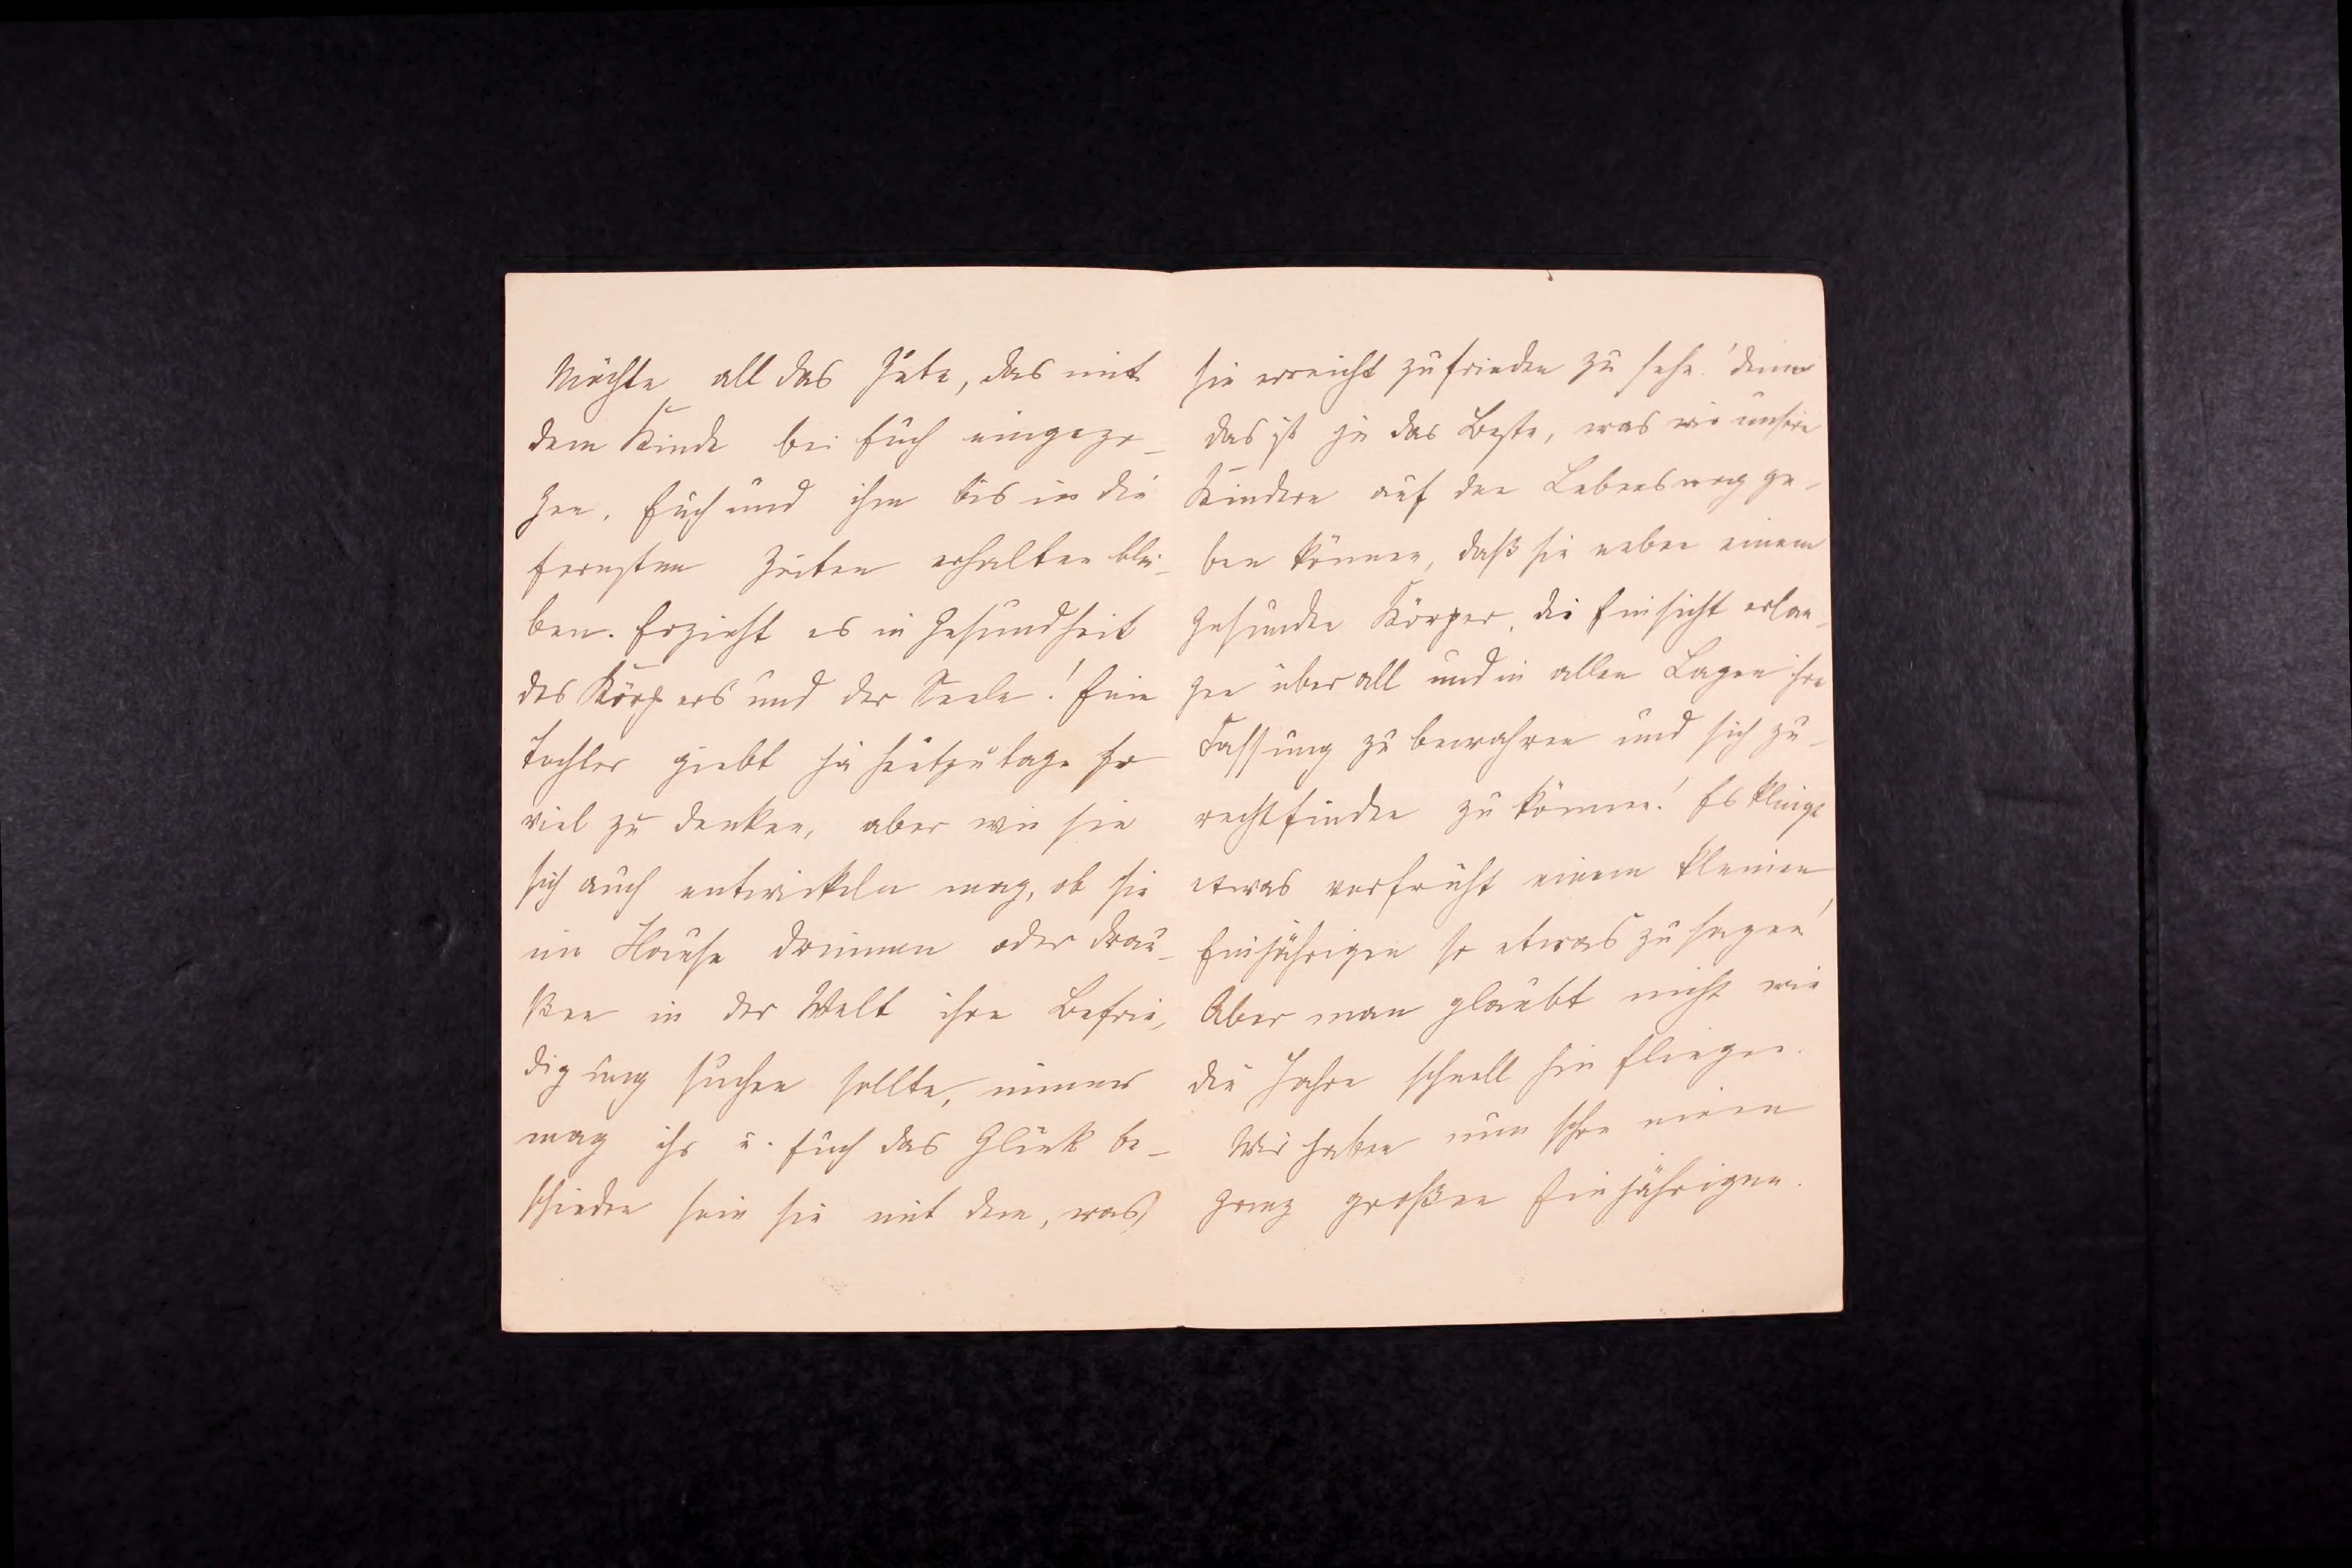 Möchte all das Gute, das mit
dem Kinde bei Euch eingezo-
gen, Euch und ihm bis in die
fernsten Zeiten erhalten blei-
ben. Erzieht es in Gesundheit
des Körpers und der Seele! Eine
Tochter giebt ja heutzutage so
viel zu denken, aber wie sie
sich auch entwickeln mag, ob sie
im Hause drinnen oder drau-
ßen in der Welt ihre Befrie-
digung suchen sollte, immer
mag ihr u. Euch das Glück be-
schieden sein sie mit dem, was
sie erreicht zufrieden zu sehn! denn
das ist ja das Beste, was wir unsern
Kindern auf den Lebensweg ge-
ben können, daß sie neben einem
gesunden Körper, die Einsicht erlan-
gen überall und in allen Lagen ihre
Fassung zu bewahren und sich zu-
rechtfinden zu können! Es klingt
etwas verfrüht einem kleinen
Einjährigen so etwas zu sagen!
Aber man glaubt nicht wie
die Jahre schnell hin fliegen.
Wir haben nun schon einen
ganz großen Einjährigen.